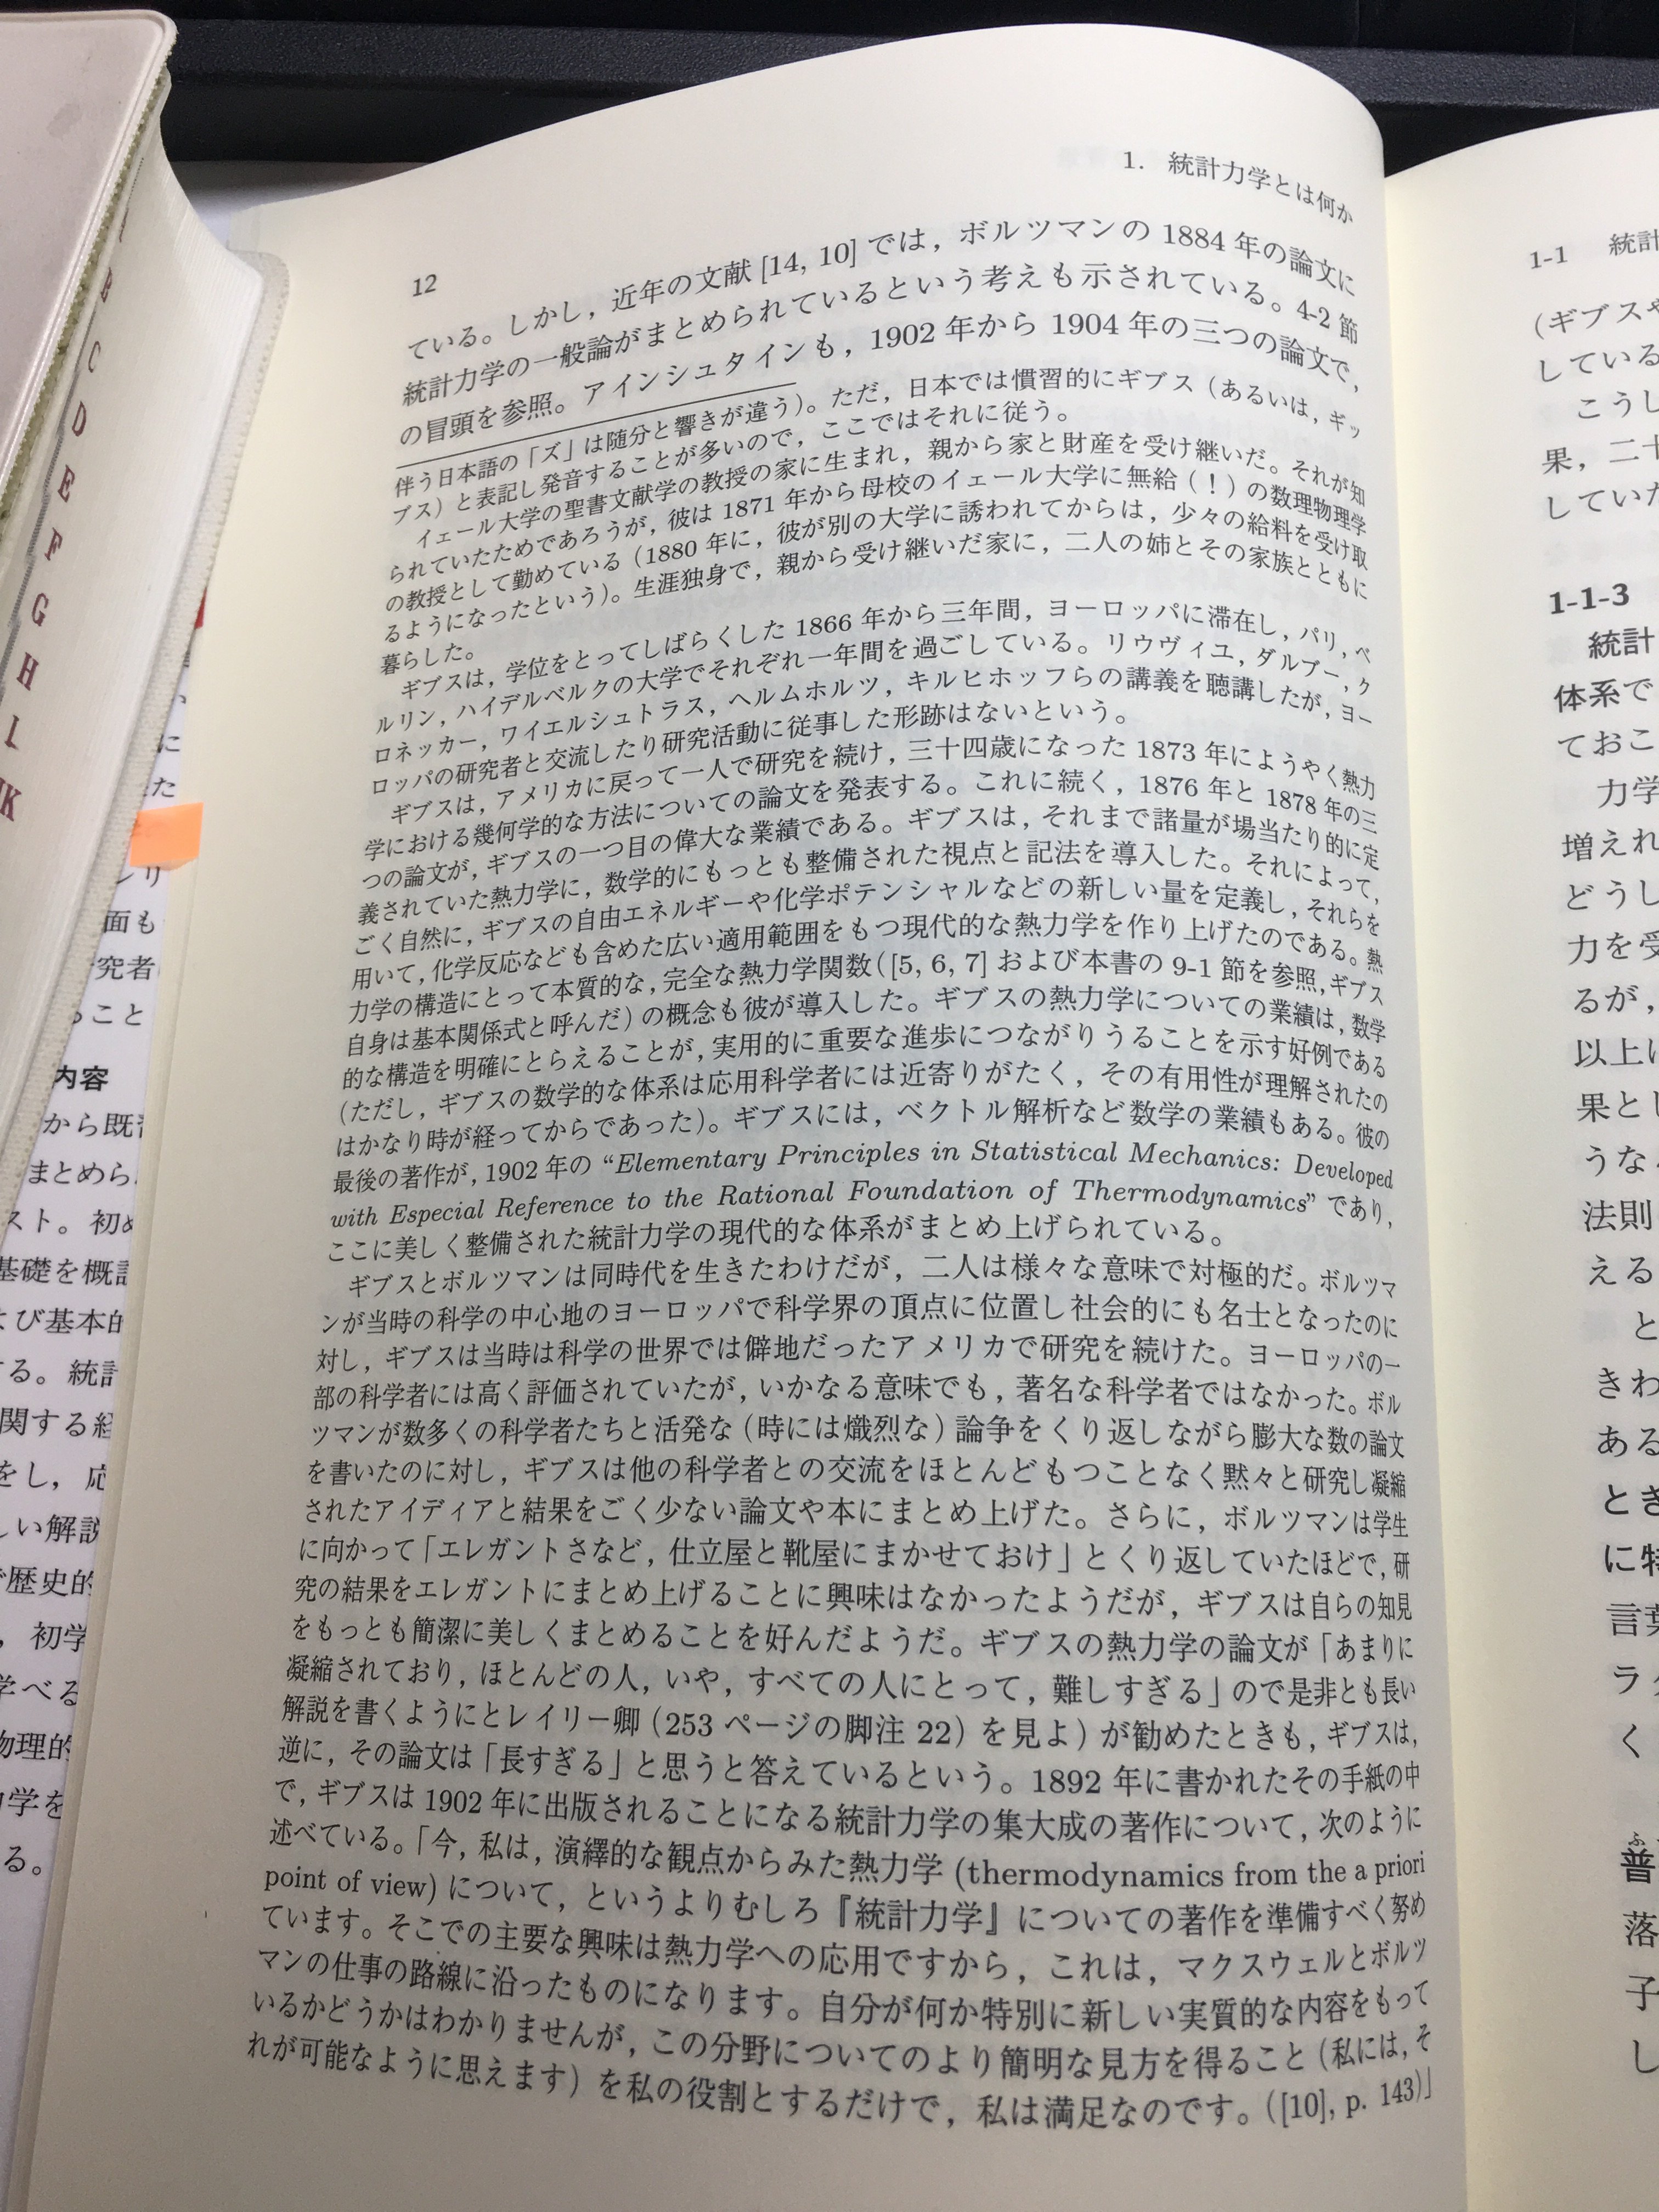 1. 統計力学とは何か
12
ている。しかし，近年の文献 [14, 10] では，ボルツマンの 1884 年の論文に
統計力学の一般論がまとめられているという考えも示されている。4-2 節
の冒頭を参照。アインシュタインも，1902 年から 1904 年の三つの論文で，
伴う日本語の「ズ」は随分と響きが違う)。ただ，日本では慣習的にギブス（あるいは，ギッ
ブス）と表記し発音することが多いので，ここではそれに従う。
イェール大学の聖書文献学の教授の家に生まれ，親から家と財産を受け継いだ。それが知
られていたためであろうが，彼は 1871 年から母校のイェール大学に無給（！）の数理物理学
の教授として勤めている（1880 年に，彼が別の大学に誘われてからは，少々の給料を受け取
るようになったという)。生涯独身で，親から受け継いだ家に，二人の姉とその家族とともに
暮らした。
ギブスは，学位をとってしばらくした 1866 年から三年間，ヨーロッパに滞在し，パリ，ベ
ルリン，ハイデルベルクの大学でそれぞれ一年間を過ごしている。リウヴィユ，ダルブー，ク
ロネッカー，ワイエルシュトラス，ヘルムホルツ，キルヒホッフらの講義を聴講したが，ヨー
ロッパの研究者と交流したり研究活動に従事した形跡はないという。
ギブスは，アメリカに戻って一人で研究を続け，三十四歳になった 1873 年にようやく熱力
学における幾何学的な方法についての論文を発表する。これに続く，1876 年と 1878 年の三
つの論文が，ギブスの一つ目の偉大な業績である。ギブスは，それまで諸量が場当たり的に定
義されていた熱力学に，数学的にもっとも整備された視点と記法を導入した。それによって，
ごく自然に，ギブスの自由エネルギーや化学ポテンシャルなどの新しい量を定義し，それらを
用いて，化学反応なども含めた広い適用範囲をもつ現代的な熱力学を作り上げたのである。熱
力学の構造にとって本質的な，完全な熱力学関数（[5, 6, 7] および本書の 9-1 節を参照，ギブス
自身は基本関係式と呼んだ）の概念も彼が導入した。ギブスの熱力学についての業績は，数学
的な構造を明確にとらえることが，実用的に重要な進歩につながりうることを示す好例である
（ただし，ギブスの数学的な体系は応用科学者には近寄りがたく，その有用性が理解されたの
はかなり時が経ってからであった)。ギブスには，ベクトル解析など数学の業績もある。彼の
最後の著作が，1902 年の “Elementary Principles in Statistical Mechanics: Developed
with Especial Reference to the Rational Foundation of Thermodynamics” であり，
ここに美しく整備された統計力学の現代的な体系がまとめ上げられている。
ギブスとボルツマンは同時代を生きたわけだが，二人は様々な意味で対極的だ。ボルツマ
ンが当時の科学の中心地のヨーロッパで科学界の頂点に位置し社会的にも名士となったのに
対し，ギブスは当時は科学の世界では僻地だったアメリカで研究を続けた。ヨーロッパの一
部の科学者には高く評価されていたが，いかなる意味でも，著名な科学者ではなかった。ボル
ツマンが数多くの科学者たちと活発な（時には熾烈な）論争をくり返しながら膨大な数の論文
を書いたのに対し，ギブスは他の科学者との交流をほとんどもつことなく黙々と研究し凝縮
されたアイディアと結果をごく少ない論文や本にまとめ上げた。さらに，ボルツマンは学生
に向かって「エレガントさなど，仕立屋と靴屋にまかせておけ」とくり返していたほどで，研
究の結果をエレガントにまとめ上げることに興味はなかったようだが，ギブスは自らの知見
をもっとも簡潔に美しくまとめることを好んだようだ。ギブスの熱力学の論文が「あまりに
凝縮されており，ほとんどの人，いや，すべての人にとって，難しすぎる」ので是非とも長い
解説を書くようにとレイリー卿（253 ページの脚注 22）を見よ）が勧めたときも，ギブスは，
逆に，その論文は「長すぎる」と思うと答えているという。1892 年に書かれたその手紙の中
で，ギブスは 1902 年に出版されることになる統計力学の集大成の著作について，次のように
述べている。「今，私は，演繹的な観点からみた熱力学 (thermodynamics from the a priori
point of view) について，というよりむしろ『統計力学』についての著作を準備すべく努め
ています。そこでの主要な興味は熱力学への応用ですから，これは，マクスウェルとボルツ
マンの仕事の路線に沿ったものになります。自分が何か特別に新しい実質的な内容をもって
いるかどうかはわかりませんが，この分野についてのより簡明な見方を得ること（私には，そ
れが可能なように思えます）を私の役割とするだけで，私は満足なのです。([10], p. 143)」
1-1 統計
（ギブスや
している
こうし
果，二十
していた
1-1-3
統計
体系で
ておこ
力学
増えれ
どうし
力を受
るが，
以上に
果とし
うな
法則
える
と
きわ
ある
とき
に特
言葉
ラ
く
普
落
子
し
C
D
E
F
G
H
I
に
た
面も
究者
こと
内容
から既
まとめら
スト。初め
基礎を概
よび基本的
する。統計
関する経
をし，応
しい解説
歴史的
，初学
学べる
物理的
学を
る。